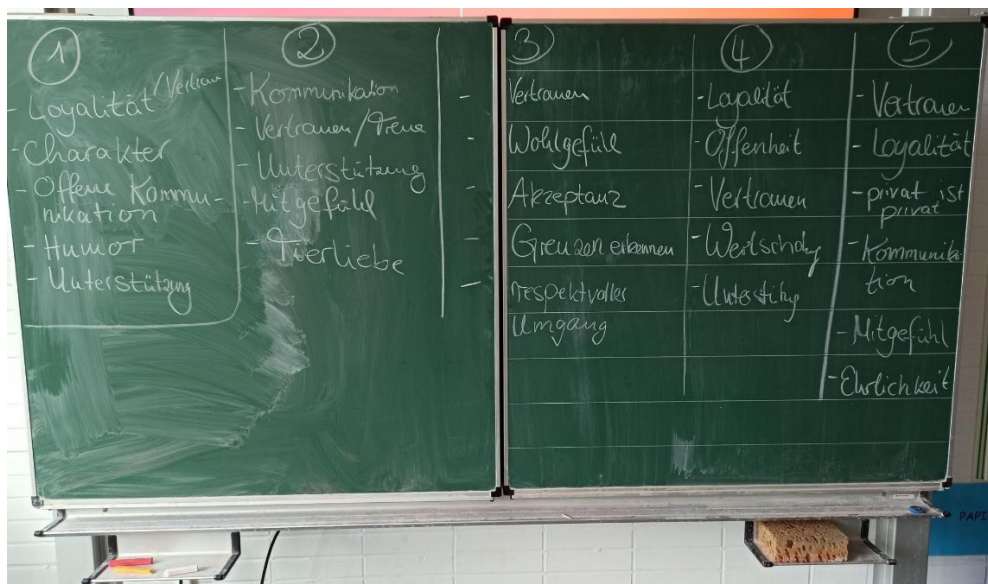 ①
- Loyalität / Vertrauen
- Charakter
- Offene Kommu-
nikation
- Humor
- Unterstützung
②
- Kommunikation
- Vertrauen / Treue
- Unterstützung
- Mitgefühl
- Tierliebe
③
- Vertrauen
- Wohlgefühl
- Akzeptanz
- Grenzen erkennen
- respektvoller
Umgang
④
- Loyalität
- Offenheit
- Vertrauen
- Wertschätzg
- Unterstützg
⑤
- Vertrauen
- Loyalität
- privat ist
privat
- Kommunika-
tion
- Mitgefühl
- Ehrlichkeit
PAPI